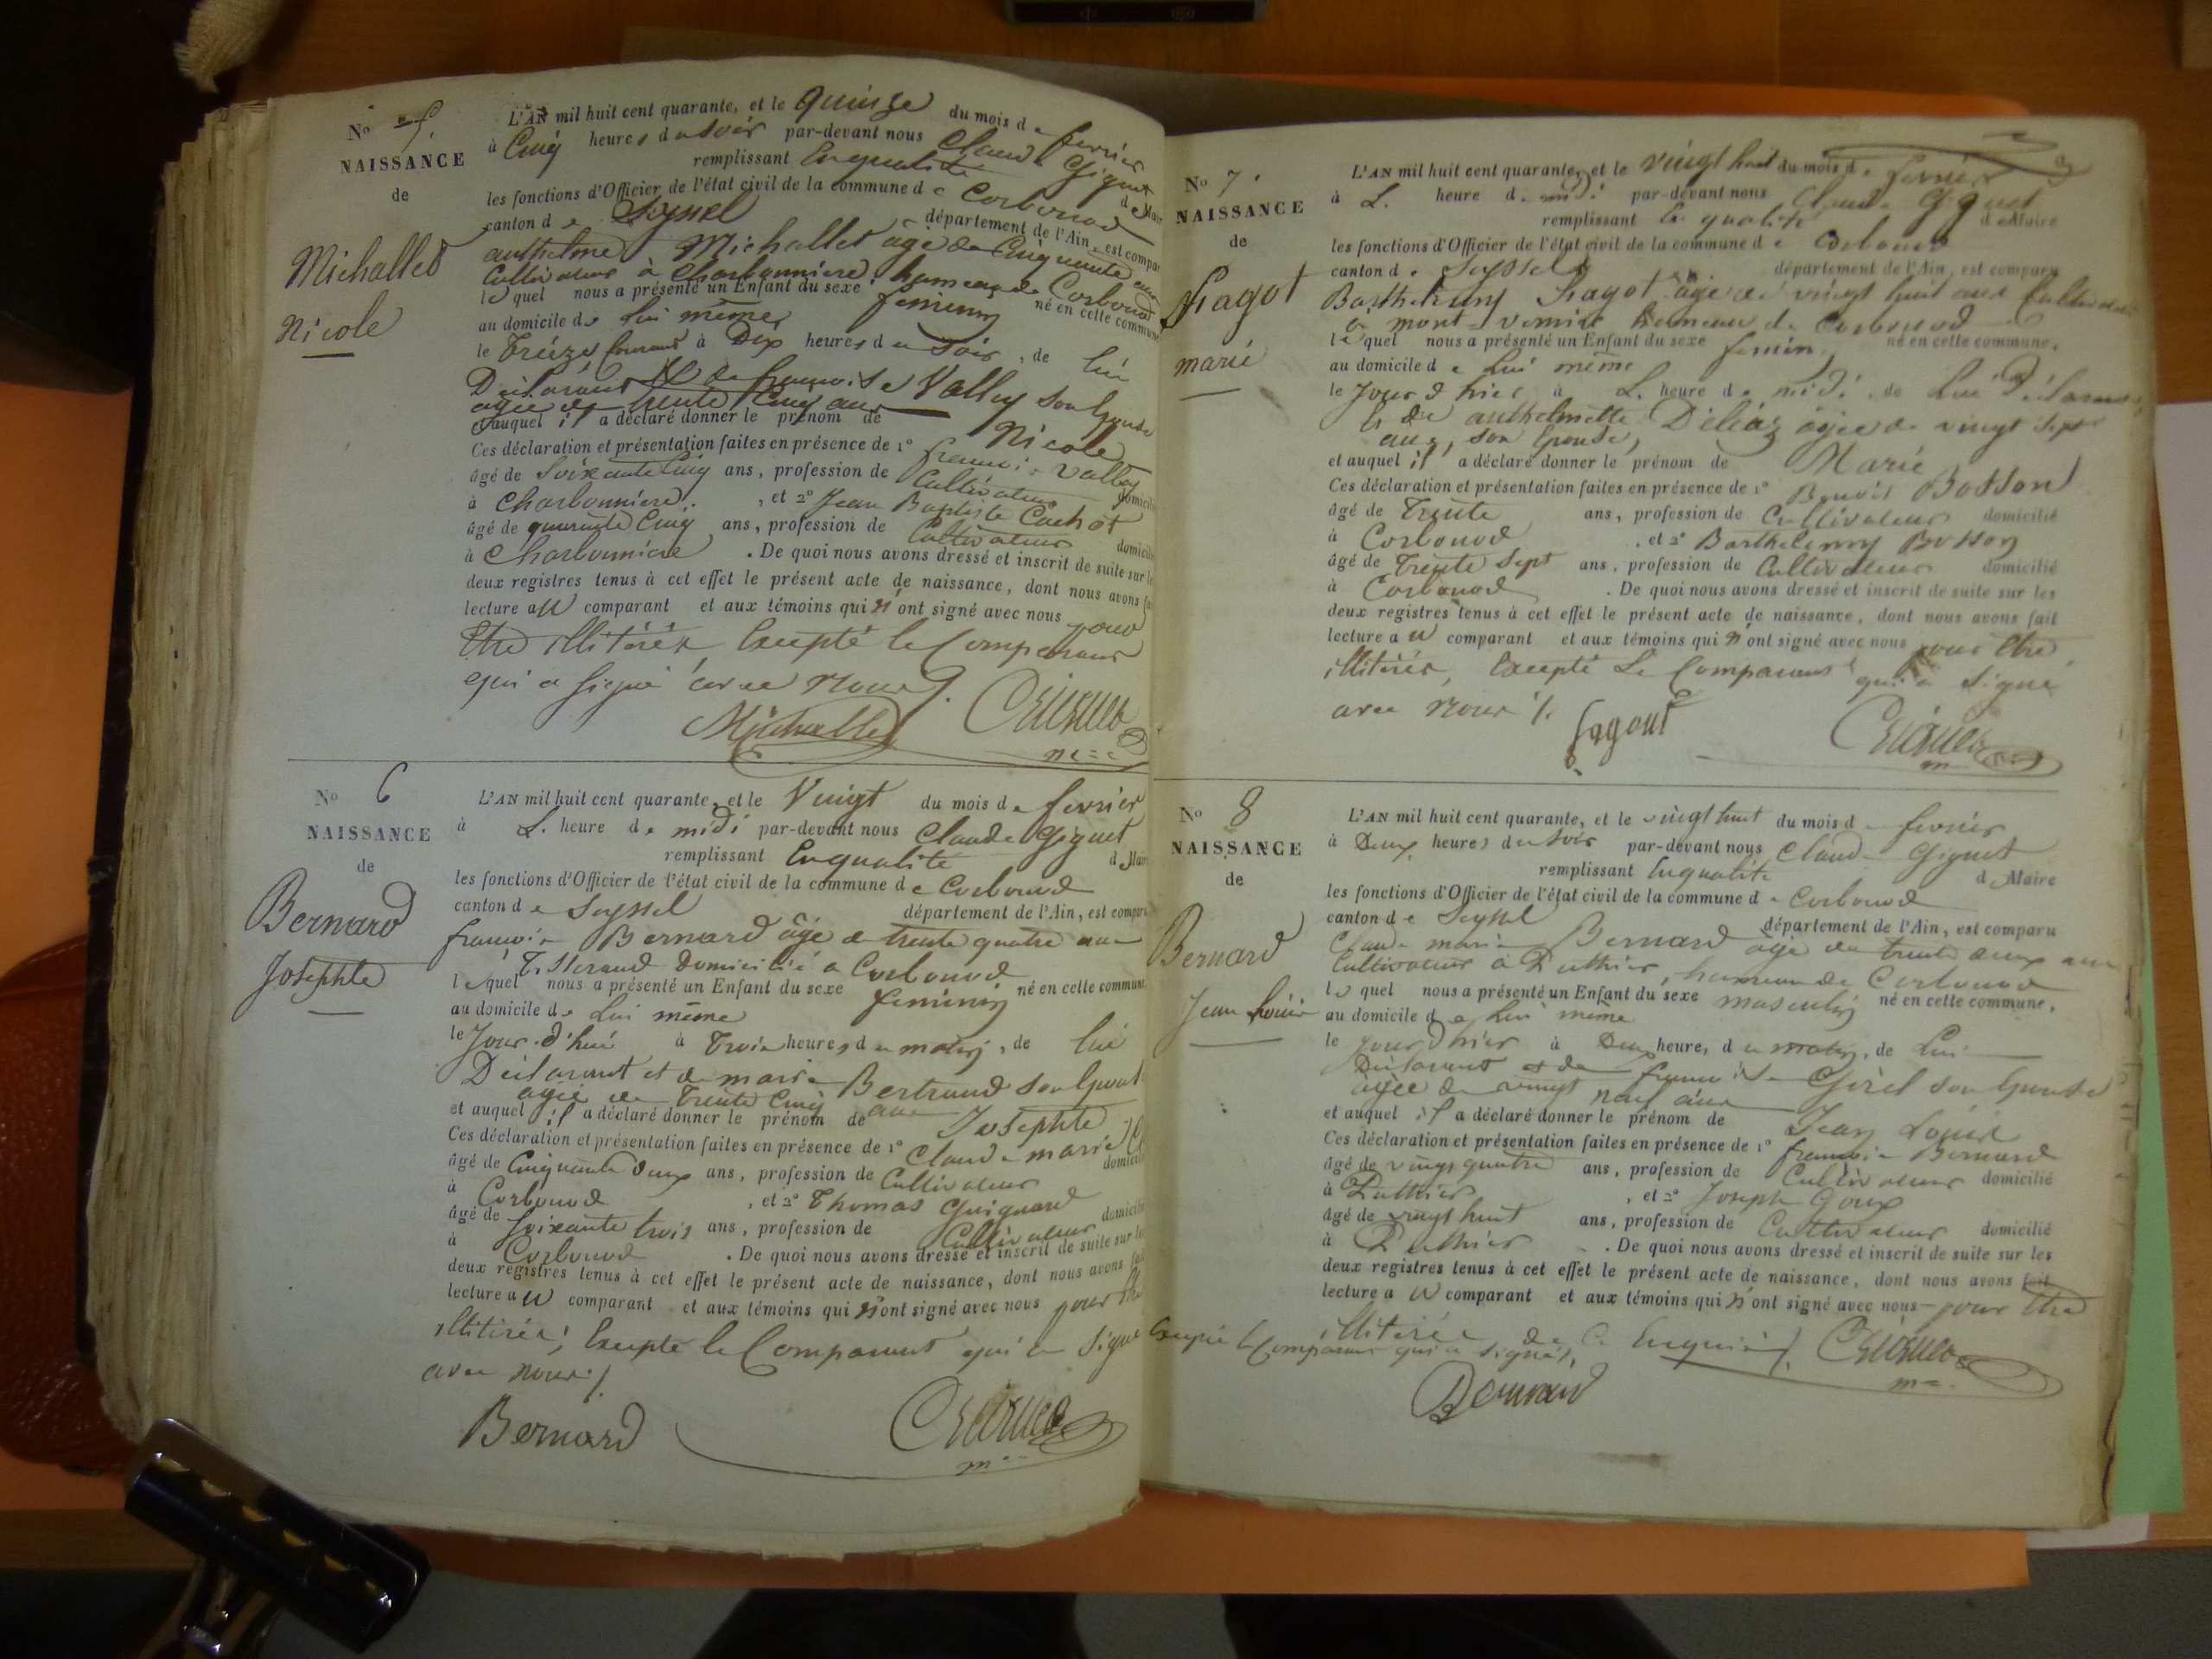 No 5.
NAISSANCE
de
Michallet
Nicole
L'AN mil huit cent quarante, et le quinze du mois de fevrier
à Cinq heures du soir par-devant nous Claude Giguet
remplissant En qualité de Maire
les fonctions d'Officier de l'état civil de la commune de Corbonod
canton de Seyssel département de l'Ain, est comparu
anthelme Michallet âgé de Cinquante ans
Cultivateur à Charbonniere, hameau de Corbonod
lequel nous a présenté un Enfant du sexe feminin né en cette commune
au domicile de lui même
le Treize Courant à Dix heures du soir, de lui
Déclarant et de francoise Valley son Epouse
agée de trente Cinq ans
et auquel il a déclaré donner le prénom de Nicole
Ces déclaration et présentation faites en présence de 1º francois Valley
âgé de Soixante Cinq ans, profession de Cultivateur domicilié
à Charbonniere, et 2º Jean Baptiste Cachot
âgé de quarante Cinq ans, profession de Cultivateur domicilié
à Charbonniere. De quoi nous avons dressé et inscrit de suite sur les
deux registres tenus à cet effet le présent acte de naissance, dont nous avons fait
lecture au comparant et aux témoins qui n'ont signé avec nous pour
Etre illitérés, Excepté le Comparant
qui a signé avec nous
Michallet
No 6
NAISSANCE
de
Bernard
Josephte
L'AN mil huit cent quarante, et le Vingt du mois de fevrier
à L. heure de midi par-devant nous Claude Giguet
remplissant En qualité de Maire
les fonctions d'Officier de l'état civil de la commune de Corbonod
canton de Seyssel département de l'Ain, est comparu
francois Bernard âgé de trente quatre ans
Tisserand Domicilié à Corbonod
lequel nous a présenté un Enfant du sexe feminin né en cette commune
au domicile de Lui même
le Jour d'hui à Trois heures du matin, de lui
Déclarant et de marie Bertrand son Epouse
agée de Trente Cinq ans
et auquel il a déclaré donner le prénom de Josephte
Ces déclaration et présentation faites en présence de 1º Claude marie
âgé de Cinquante Deux ans, profession de Cultivateur domicilié
à Corbonod, et 2º Thomas Guignard
âgé de Soixante trois ans, profession de Cultivateur domicilié
à Corbonod. De quoi nous avons dressé et inscrit de suite sur les
deux registres tenus à cet effet le présent acte de naissance, dont nous avons fait
lecture au comparant et aux témoins qui n'ont signé avec nous pour Etre
illitérés, Excepté le Comparant qui a Signé
avec nous /.
Bernard
No 7.
NAISSANCE
de
Fagot
marie
L'AN mil huit cent quarante, et le vingt huit du mois de fevrier
à L. heure de midi par-devant nous Claude Giguet
remplissant En qualité de Maire
les fonctions d'Officier de l'état civil de la commune de Corbonod
canton de Seyssel département de l'Ain, est comparu
Barthelemy Fagot âgé de vingt huit ans Cultivateur
à hameau de Corbonod
lequel nous a présenté un Enfant du sexe feminin, né en cette commune,
au domicile de lui même
le Jour d'hier à L. heure de midi, de lui Déclarant
et de anthelmette Déléaz âgée de vingt sept
ans, son Epouse,
et auquel il a déclaré donner le prénom de Marie
Ces déclaration et présentation faites en présence de 1º Benoit Bosson
âgé de Trente ans, profession de Cultivateur domicilié
à Corbonod, et 2º Barthelemy Bosson
âgé de Trente Sept ans, profession de Cultivateur domicilié
à Corbonod. De quoi nous avons dressé et inscrit de suite sur les
deux registres tenus à cet effet le présent acte de naissance, dont nous avons fait
lecture au comparant et aux témoins qui n'ont signé avec nous pour Etre
illitérés, Excepté Le Comparant qui a Signé
avec nous /.
fagout
No 8
NAISSANCE
de
Bernard
Jean Louis
L'AN mil huit cent quarante, et le vingt huit du mois de fevrier
à Deux heures du soir par-devant nous Claude Giguet
remplissant En qualité de Maire
les fonctions d'Officier de l'état civil de la commune de Corbonod
canton de Seyssel département de l'Ain, est comparu
Claude marie Bernard âgé de trente deux ans
Cultivateur à hameau de Corbonod
lequel nous a présenté un Enfant du sexe masculin né en cette commune,
au domicile de lui même
le jour d'hier à Deux heures du matin, de Lui
Déclarant et de francoise Girel son Epouse
âgée de vingt neuf ans
et auquel il a déclaré donner le prénom de Jean Louis
Ces déclaration et présentation faites en présence de 1º francois Bernard
âgé de vingt quatre ans, profession de Cultivateur domicilié
à, et 2º Joseph Goux
âgé de vingt huit ans, profession de Cultivateur domicilié
à. De quoi nous avons dressé et inscrit de suite sur les
deux registres tenus à cet effet le présent acte de naissance, dont nous avons fait
lecture au comparant et aux témoins qui n'ont signé avec nous pour Etre
illitérés, de ce Enquis /.
Excepté le Comparant qui a signé,
Bernard